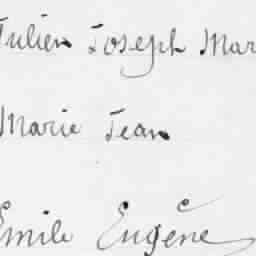 Julien Joseph Mar
Marie Jean
Emile Eugène